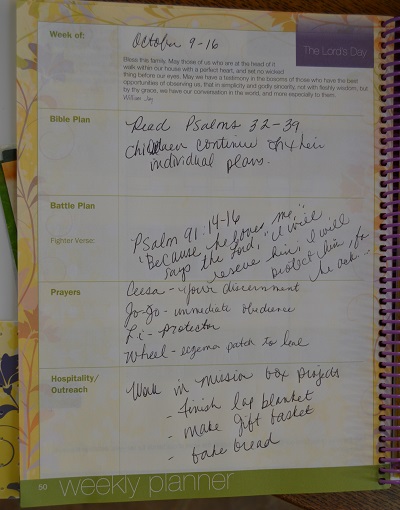 Week of:
October 9-16
The Lord's Day
Bless this family. May those of us who are at the head of it
walk within our house with a perfect heart, and set no wicked
thing before our eyes. May we have a testimony in the bosoms of those who have the best
opportunities of observing us, that in simplicity and godly sincerity, not with fleshly wisdom, but
by thy grace, we have our conversation in the world, and more especially to them.
William Jay
Bible Plan
Read Psalms 32-39
Children continue in their
individual plans.
Battle Plan
Fighter Verse:
Psalm 91:14-16
"Because he loves me,"
says the Lord, "I will
rescue him, I will
protect him, for
he ack...
Prayers
Ceesa - your discernment
Jo-Jo - immediate obedience
Li - Protector
Wheel - eczema patch to heal
Hospitality/
Outreach
Work in mission box projects
- finish lap blanket
- make gift basket
- bake bread
50 weekly planner